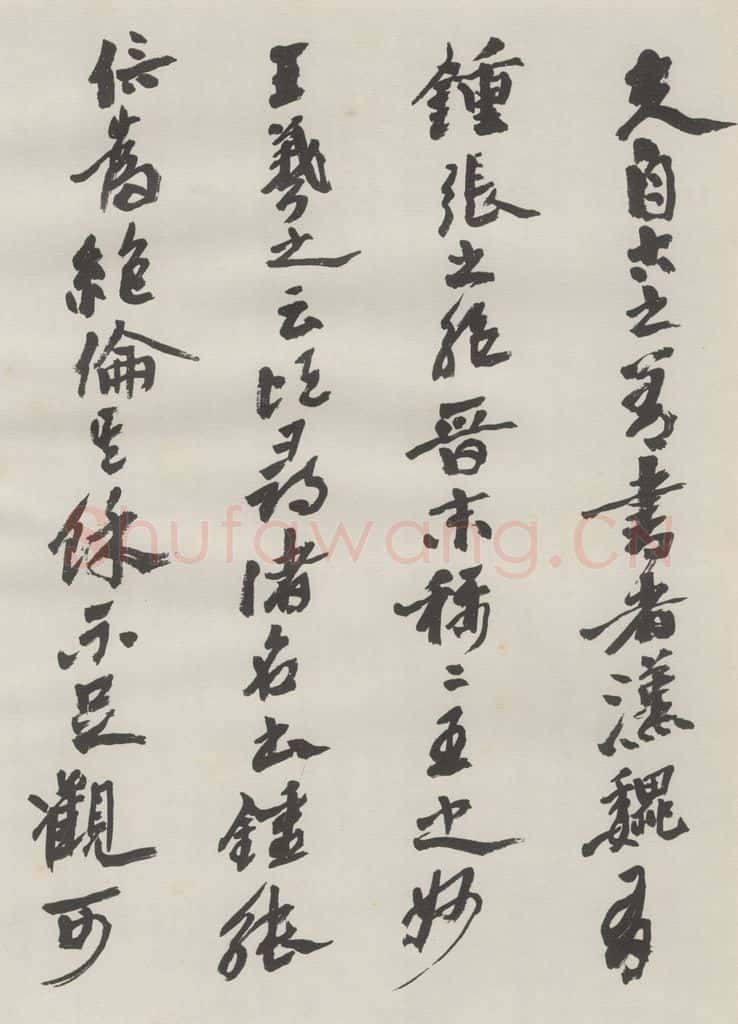 夫自古之善書者漢魏有
鍾張之絕晉末稱二王之妙
王羲之云頃尋諸名書鍾張
信為絕倫其餘不足觀可
Shufawang.CN